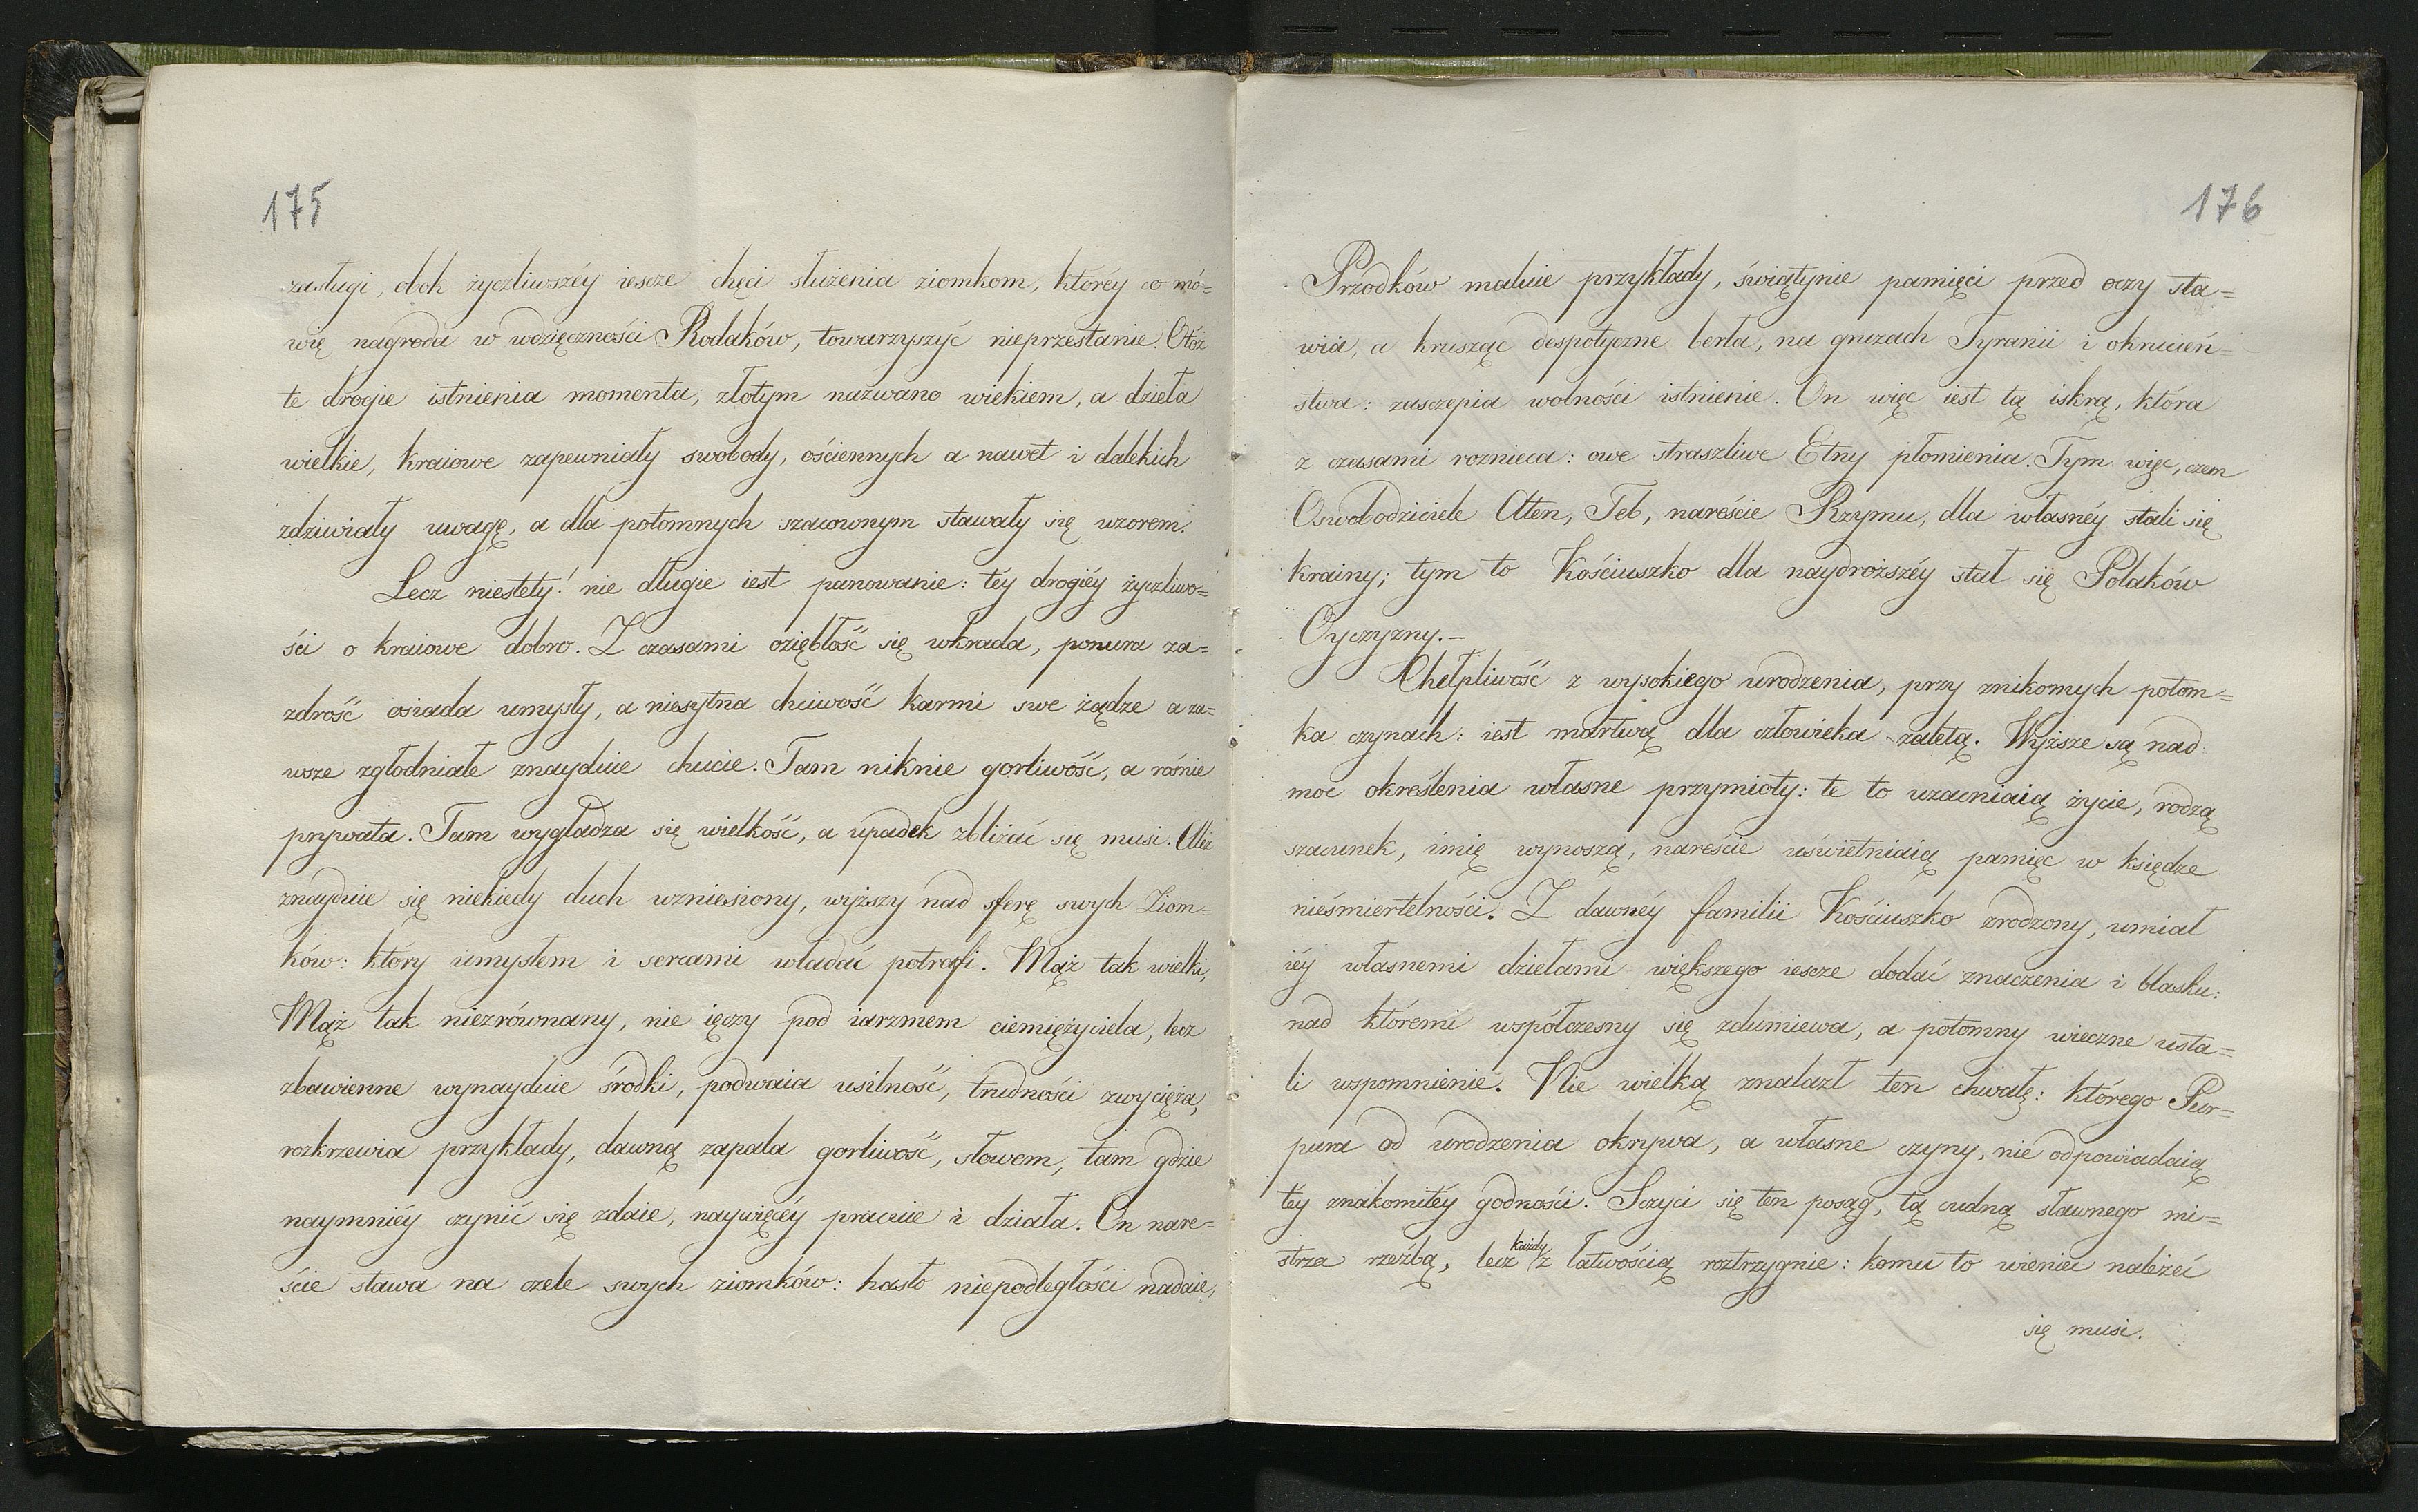 175
zasługi, obok życzliwszéy iescze chęci służenia ziomkom, któréy co mó=
wię nagroda w wdzięczności Rodaków, towarzyszyć nieprzestanie. Otóż
te drogie istnienia momenta, złotym nazwano wiekiem, a dzieła
wielkie, kraiowe zapewniały swobody, ościennych a nawet i dalekich
zdziwiały uwagę, a dla potomnych szacownym stawały się wzorem.
Lecz niestety! nie długie iest panowanie: téy drogiéy życzliwo=
ści o kraiowe dobro. Z czasami oziębłość się wkrada, ponura za=
zdrość osiada umysły, a niesytna chciwość karmi swe żądze a za=
wsze zgłodniałe znayduie chucie. Tam niknie gorliwość, a rośnie
prywata. Tam wygładza się wielkość, a upadek zbliżać się musi. Aliż
znayduie się niekiedy duch wzniesiony, wyższy nad sferę swych Ziom=
ków: który umysłem i sercami władać potrafi. Mąż tak wielki,
Mąż tak niezrównany, nie ięczy pod iarzmem ciemiężyciela, lecz
zbawienne wynayduie środki, podwaia usilność, trudności zwycięża,
rozkrzewia przykłady, dawną zapala gorliwość, słowem, tam gdzie
naymniéy czynić się zdaie, naywięcéy pracuie i działa. On nare=
ście stawa na czele swych ziomków: hasło niepodległości nadaie,
176
Przodków maluie przykłady, świątynie pamięci przed oczy sta=
wia, a krusząc despotyczne berła, na gruzach Tyranii i okrucień=
stwa: zasczepia wolności istnienie. On więc iest tą iskrą, która
z czasami roznieca: owe straszliwe Etny płomienia. Tym więc, czem
Oswobodziciele Aten, Teb, nareście Rzymu, dla własnéy stali się
krainy; tym to Kościuszko dla naydroższéy stał się Polaków
Oyczyzny.–
Chełpliwość z wysokiego urodzenia, przy znikomych potom=
ka czynach: iest martwą dla człowieka zaletą. Wyższe są nad
moc określenia własne przymioty: te to uzacniaią życie, rodzą
szacunek, imię wynoszą, nareście uświetniaią pamięc w księdze
nieśmiertelności. Z dawnéy familii Kościuszko zrodzony, umiał
iéy własnemi dziełami większego iescze dodać znaczenia i blasku:
nad któremi współczesny się zdumiewa, a potomny wieczne usta=
li wspomnienie. Nie wielką znalazł ten chwałę: którego Pur=
pura od urodzenia okrywa, a własne czyny, nie odpowiadaią
téy znakomitéy godności. Sczyci się ten posąg, tą cudną sławnego mi=
strza rzeźbą, lecz każdy z łatwością roztrzygnie: komu to wieniec należeć
się musi.